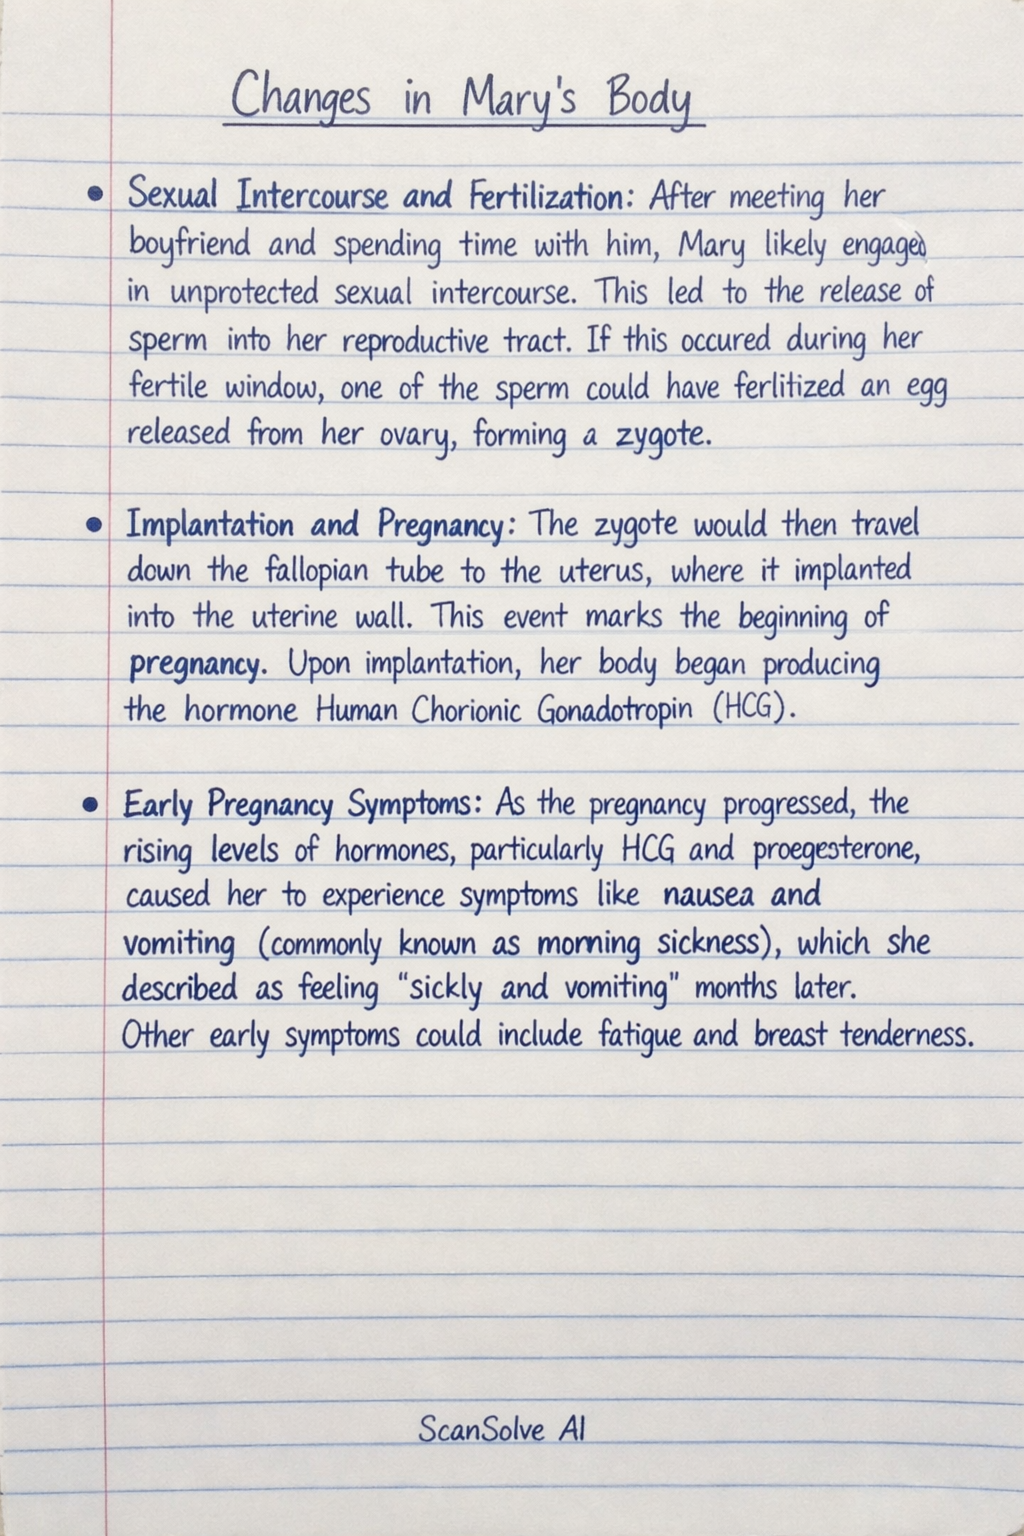 Changes in Mary's Body
• Sexual Intercourse and Fertilization: After meeting her
boyfriend and spending time with him, Mary likely engaged
in unprotected sexual intercourse. This led to the release of
sperm into her reproductive tract. If this occured during her
fertile window, one of the sperm could have ferlitized an egg
released from her ovary, forming a zygote.
• Implantation and Pregnancy: The zygote would then travel
down the fallopian tube to the uterus, where it implanted
into the uterine wall. This event marks the beginning of
pregnancy. Upon implantation, her body began producing
the hormone Human Chorionic Gonadotropin (HCG).
• Early Pregnancy Symptoms: As the pregnancy progressed, the
rising levels of hormones, particularly HCG and proegesterone,
caused her to experience symptoms like nausea and
vomiting (commonly known as morning sickness), which she
described as feeling "sickly and vomiting" months later.
Other early symptoms could include fatigue and breast tenderness.
ScanSolve AI